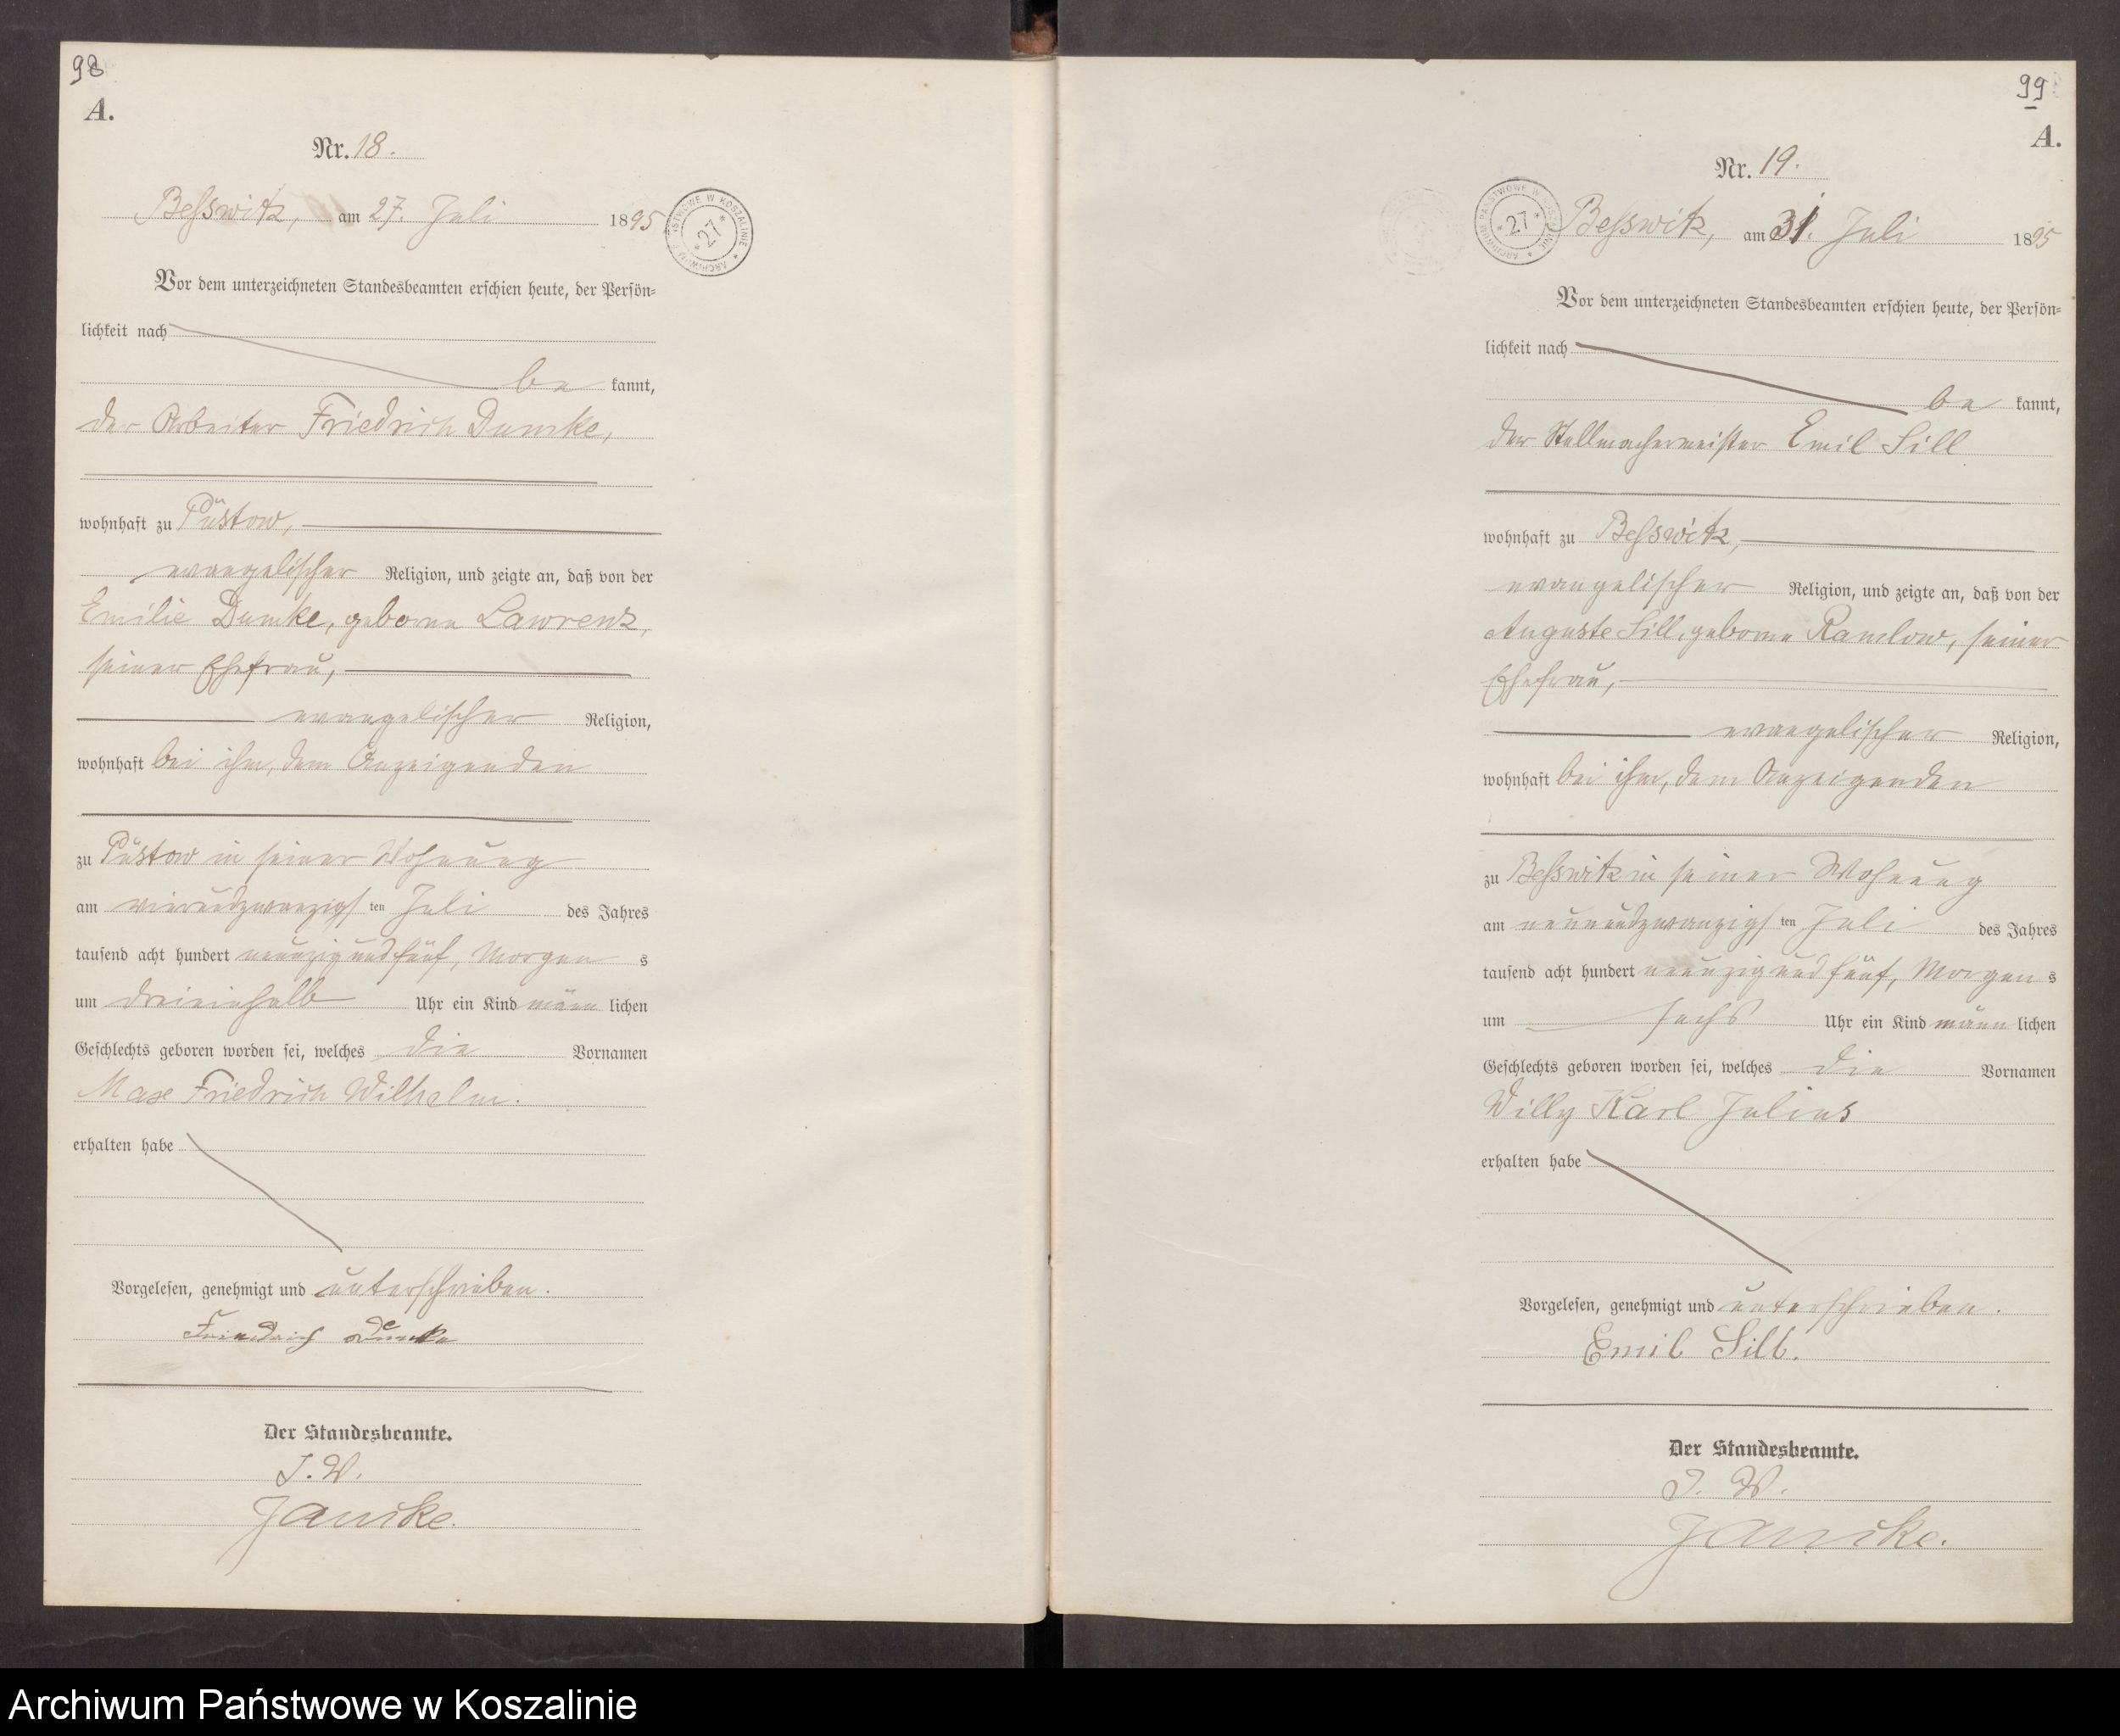 98
A.
Nr. 18.
Beßwitz, am 27. Juli 1895
ARCHIWUM PAŃSTWOWE W KOSZALINIE * 27 *
Vor dem unterzeichneten Standesbeamten erschien heute, der Persön-
lichkeit nach
be kannt,
der Arbeiter Friedrich Dumke,
wohnhaft zu Püstow,
evangelischer Religion, und zeigte an, daß von der
Emilie Dumke, geborne Lawrenz,
seiner Ehefrau,
evangelischer Religion,
wohnhaft bei ihm, dem Anzeigenden
zu Püstow in seiner Wohnung
am vierundzwanzigs ten Juli des Jahres
tausend acht hundert neunzig und fünf, Morgen s
um dreieinhalb Uhr ein Kind männ lichen
Geschlechts geboren worden sei, welches die Vornamen
Max Friedrich Wilhelm.
erhalten habe
Vorgelesen, genehmigt und unterschrieben.
Friedrich Dumke
Der Standesbeamte.
J. V.
Janike.
99
A.
Nr. 19.
ARCHIWUM PAŃSTWOWE W KOSZALINIE * 27 *
Beßwitz, am 31. Juli 1895
Vor dem unterzeichneten Standesbeamten erschien heute, der Persön-
lichkeit nach
be kannt,
der Stellmachermeister Emil Sill
wohnhaft zu Beßwitz,
evangelischer Religion, und zeigte an, daß von der
Auguste Sill, geborne Ramlow, seiner
Ehefrau,
evangelischer Religion,
wohnhaft bei ihm, dem Anzeigenden
zu Beßwitz in seiner Wohnung
am neunundzwanzigs ten Juli des Jahres
tausend acht hundert neunzig und fünf, Morgen s
um sechs Uhr ein Kind männ lichen
Geschlechts geboren worden sei, welches die Vornamen
Willy Karl Julius
erhalten habe
Vorgelesen, genehmigt und unterschrieben.
Emil Sill.
Der Standesbeamte.
J. V.
Janike.
Archiwum Państwowe w Koszalinie